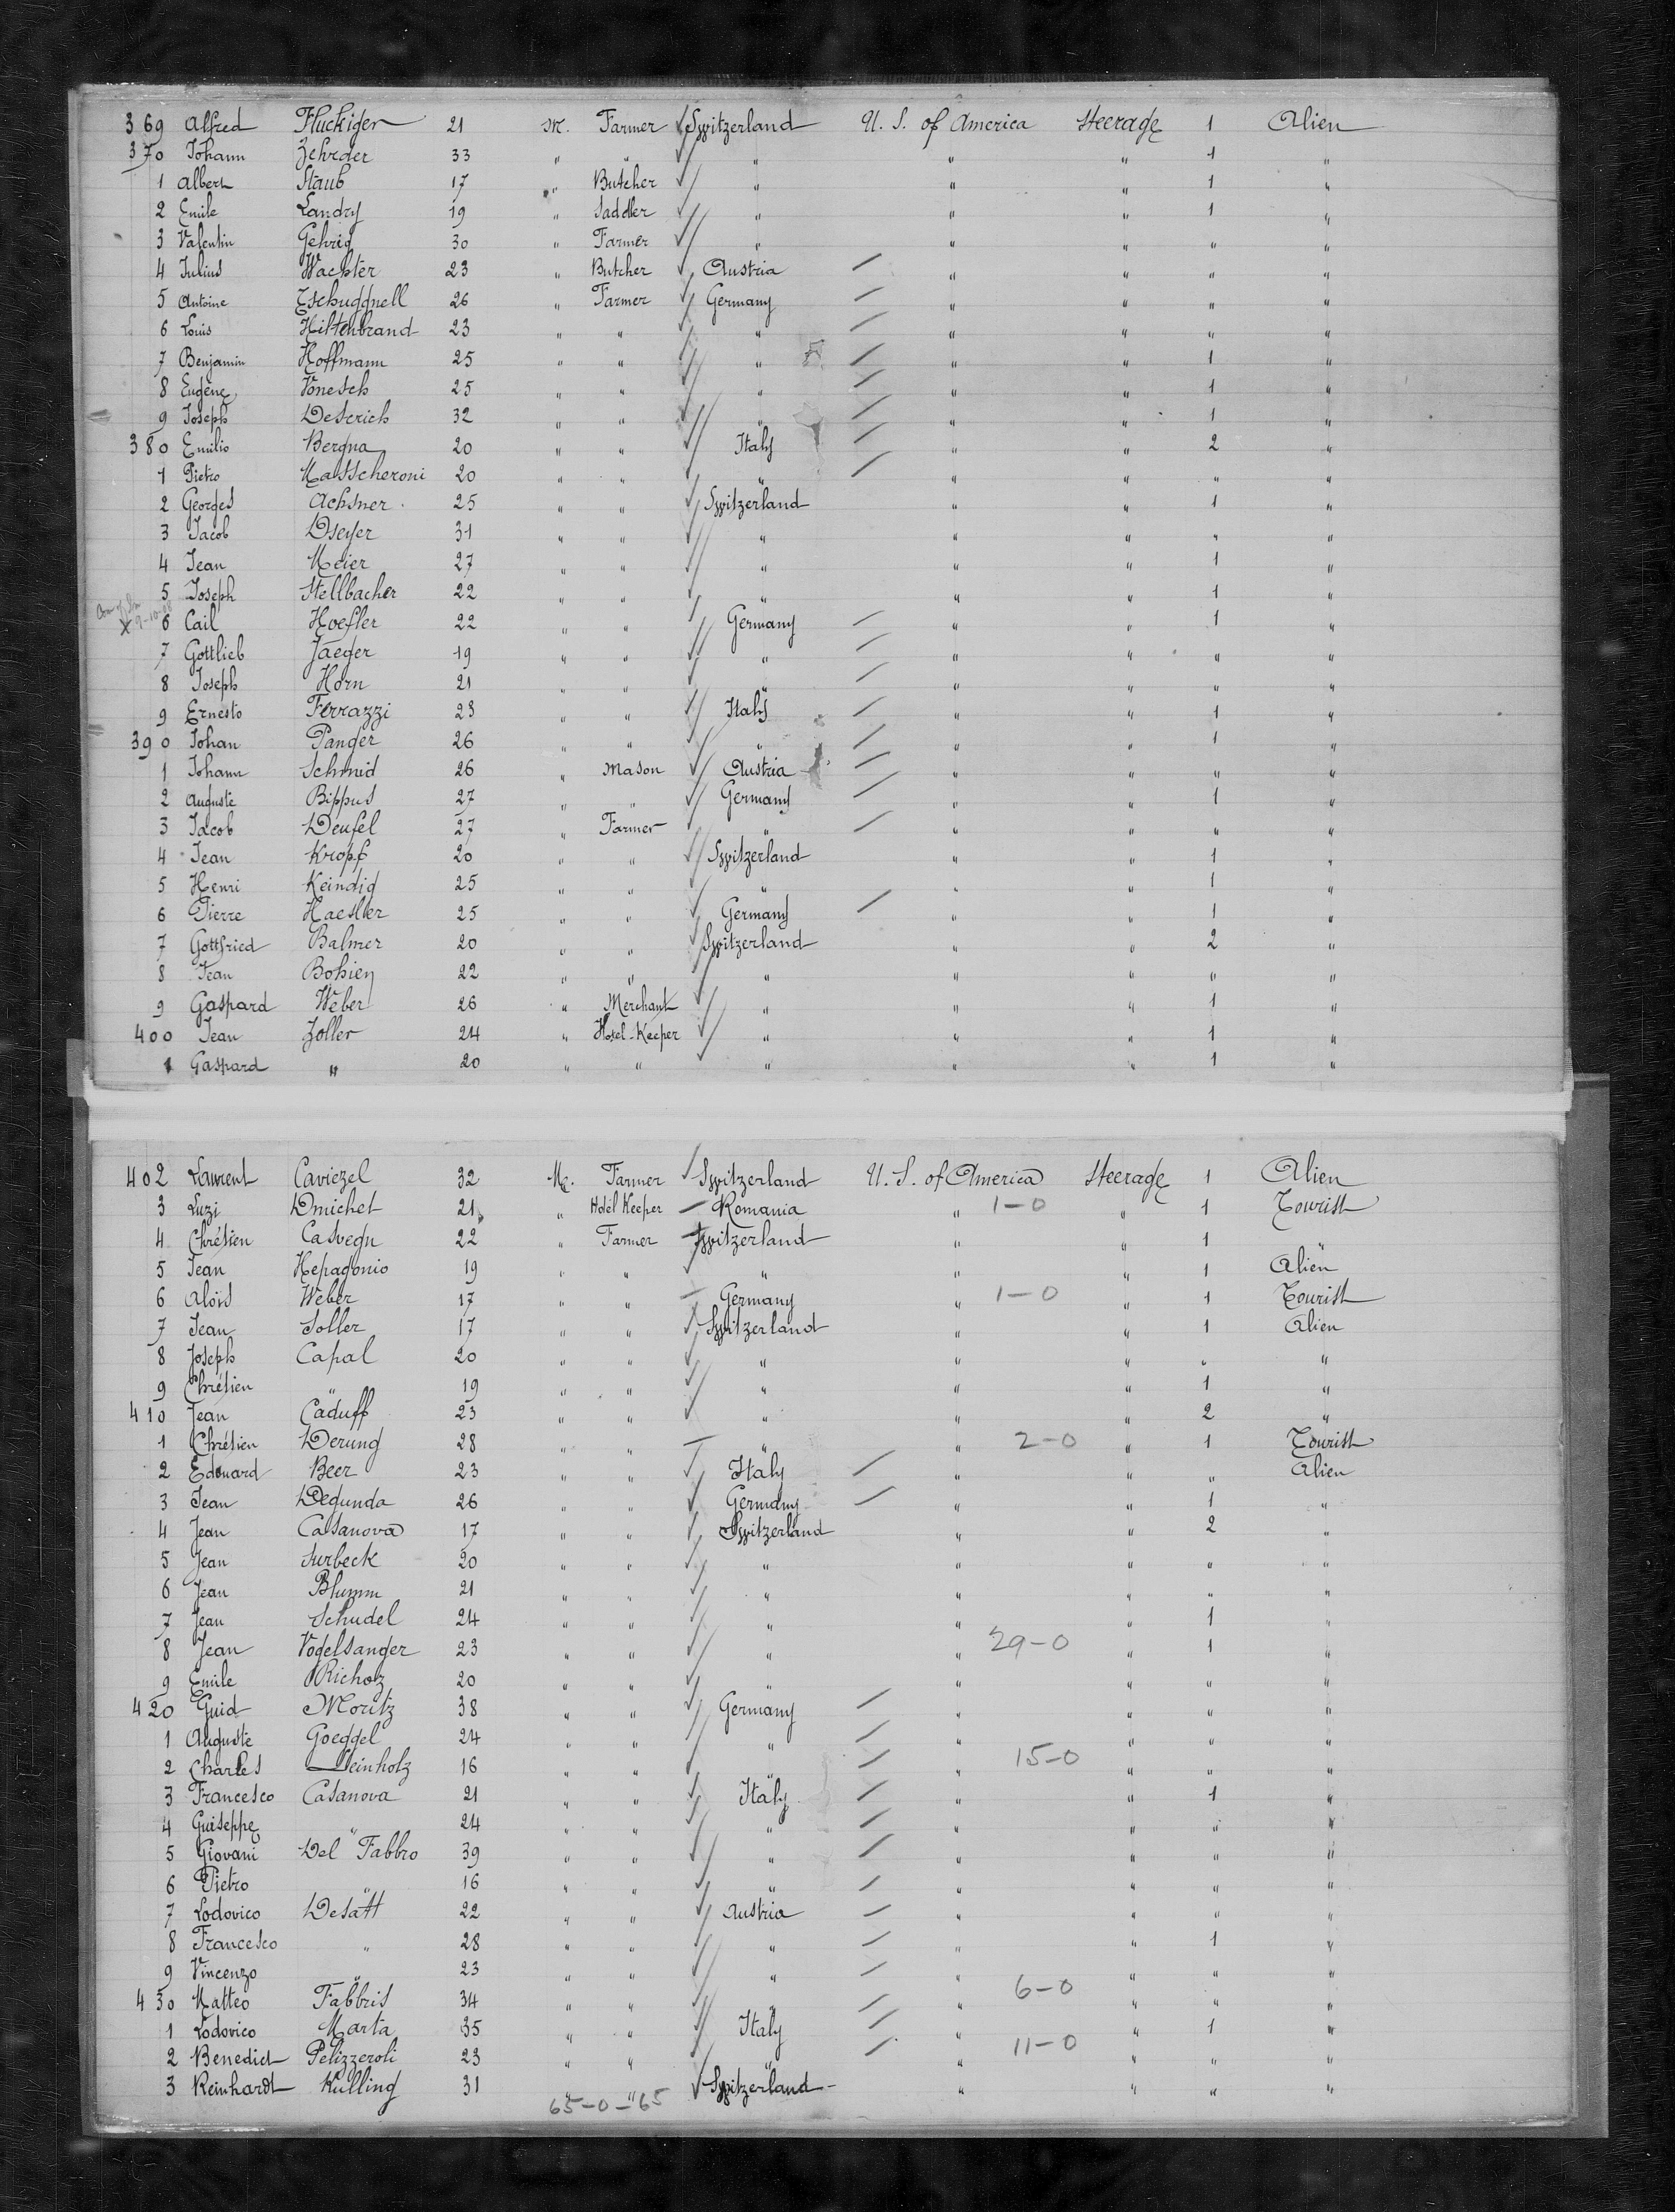 369 Alfred Fluckiger 21 M. Farmer Switzerland U. S. of America Steerage 1 Alien
370 Johann Zehrder 33 " " " " " 1 "
1 Albert Staub 17 " Butcher " " " 1 "
2 Emile Landry 19 " Saddler " " " 1 "
3 Valentin Gehrig 30 " Farmer " " " " "
4 Julius Wachter 23 " Butcher Austria " " " "
5 Antoine Tschuggnell 26 " Farmer Germany " " " "
6 Louis Hiltenbrand 23 " " " " " " "
7 Benjamin Hoffmann 25 " " " " " 1 "
8 Eugene Vonesch 25 " " " " " 1 "
9 Joseph Deserich 32 " " " " " 1 "
380 Emilio Bergna 20 " " Italy " " 2 "
1 Pietro Masscheroni 20 " " " " " " "
2 Georges Achsner 25 " " Switzerland " " 1 "
3 Jacob Dseyer 31 " " " " " " "
4 Jean Meier 27 " " " " " 1 "
5 Joseph Stellbacher 22 " " " " " 1 "
6 Cail Hoefler 22 " " Germany " " 1 "
7 Gottlieb Jaeger 19 " " " " " " "
8 Joseph Horn 21 " " " " " " "
9 Ernesto Ferrazzi 23 " " Italy " " 1 "
390 Johan Panger 26 " " " " " 1 "
1 Johann Schmid 26 " Mason Austria " " " "
2 Auguste Bippus 27 " " Germany " " 1 "
3 Jacob Deufel 27 " Farmer " " " " "
4 Jean Kropf 20 " " Switzerland " " 1 "
5 Henri Keindig 25 " " " " " 1 "
6 Pierre Haesler 25 " " Germany " " 1 "
7 Gottfried Balmer 20 " " Switzerland " " 2 "
8 Jean Bohien 22 " " " " " " "
9 Gaspard Weber 26 " Merchant " " " 1 "
400 Jean Zoller 24 " Hotel-Keeper " " " 1 "
1 Gaspard " 20 " " " " " 1 "
402 Laurent Caviezel 32 M. Farmer Switzerland U. S. of America Steerage 1 Alien
3 Luzi Dmichet 21 " Hotel Keeper Romania " 1-0 " 1 Tourist
4 Chrétien Casvegn 22 " Farmer Switzerland " " 1 "
5 Jean Hepagonio 19 " " " " " 1 Alien
6 Alois Weber 17 " " Germany " 1-0 " 1 Tourist
7 Jean Soller 17 " " Switzerland " " 1 Alien
8 Joseph Capal 20 " " " " " " "
9 Chrétien " 19 " " " " " 1 "
410 Jean Caduff 23 " " " " " 2 "
1 Chrétien Derung 28 " " " " 2-0 " 1 Tourist
2 Edouard Beer 23 " " Italy " " " Alien
3 Jean Degunda 26 " " Germany " " 1 "
4 Jean Casanova 17 " " Switzerland " " 2 "
5 Jean Surbeck 20 " " " " " " "
6 Jean Blumm 21 " " " " " " "
7 Jean Schudel 24 " " " " " 1 "
8 Jean Vogelsanger 23 " " " " 29-0 " 1 "
9 Emile Richoz 20 " " " " " " "
420 Guid Moritz 38 " " Germany " " " "
1 Auguste Goeggel 24 " " " " " " "
2 Charles Leinholz 16 " " " " 15-0 " " "
3 Francesco Casanova 21 " " Italy " " 1 "
4 Guiseppe " 24 " " " " " " "
5 Giovani Del Fabbro 39 " " " " " " "
6 Pietro " 16 " " " " " " "
7 Lodovico Desatt 22 " " Austria " " " "
8 Francesco " 28 " " " " " 1 "
9 Vincenzo " 23 " " " " " " "
430 Matteo Fabbris 34 " " " " 6-0 " " "
1 Lodovico Marta 35 " " Italy " " 1 "
2 Benedict Pelizzeroli 23 " " " " 11-0 " " "
3 Reinhardt Kulling 31 " " Switzerland " " " "
65-0-65